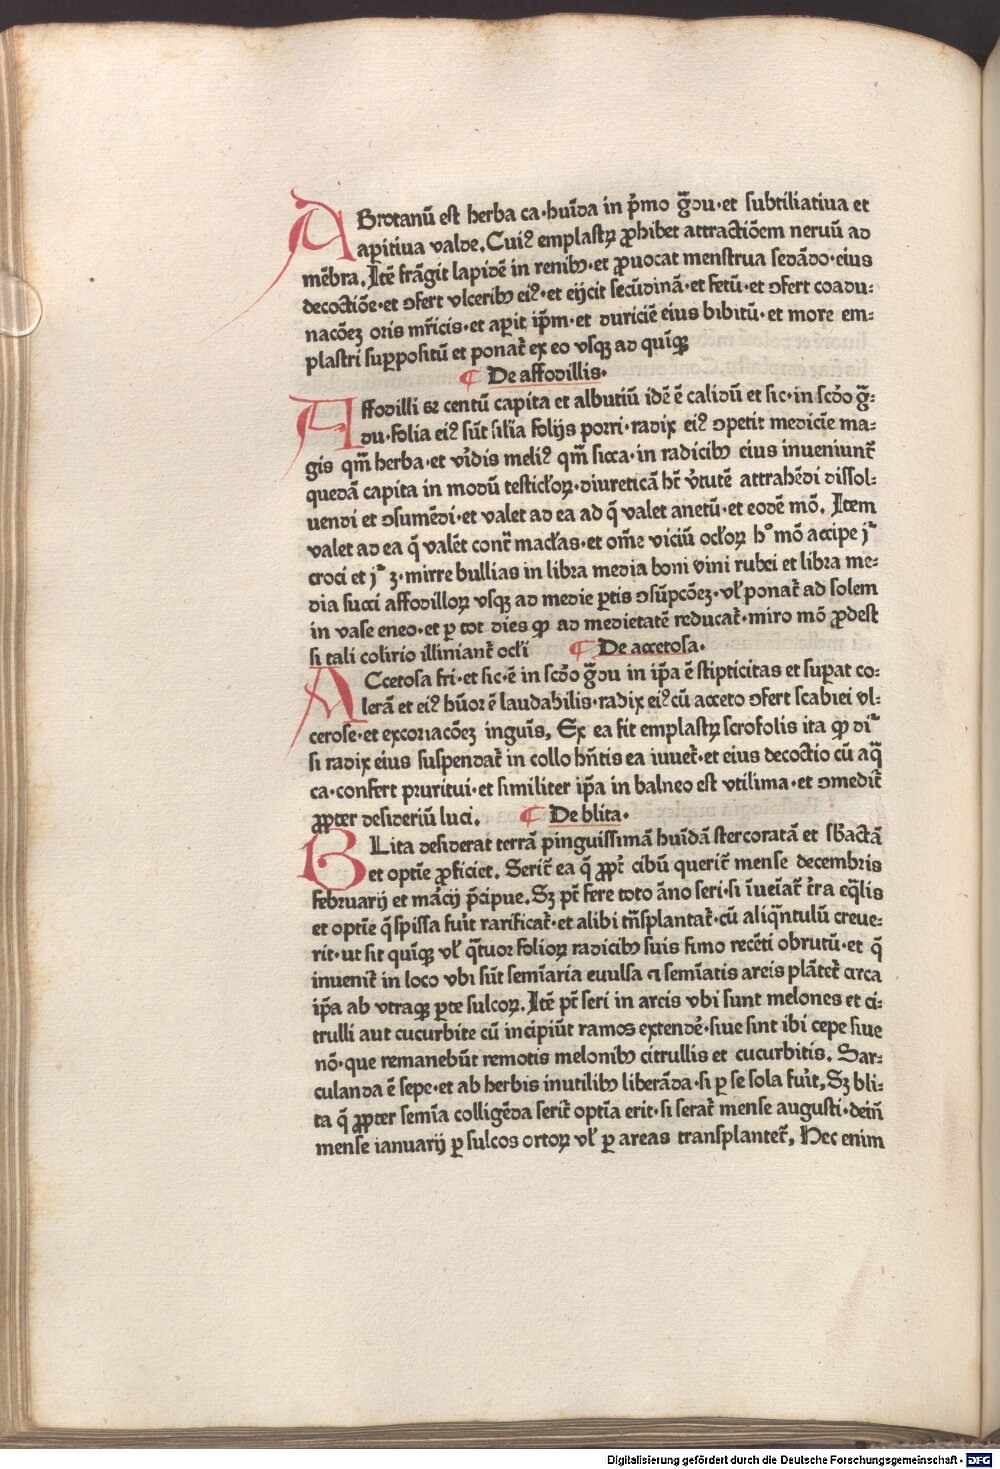 ABrotanū est herba ca·huīda in p̄mo g̃du·et subtiliatiua et
aꝑitiua valde. Cuiꝰ emplastꝝ ꝓhibet attractiōem neruū ad
mēbra. Itē frāgit lapidē in renibꝫ·et ꝓuocat menstrua sedādo·eius
decoctiōe·et ꝯfert vlceribꝫ eiꝰ·et eijcit secūdinā·et fetū·et ꝯfert coadu:
nacōeꝫ oris mr̄icis·et aꝑit ip̄m·et duriciē eius bibitū·et more em:
plastri supꝑositū et ponat᷑ ex eo vsqꝫ ad quīqꝫ
¶ De affodillis·
AFfodilli sꝫ centū capita et albutiū idē ē calidū et sic·in scd̄o g̃:
du·folia eiꝰ sūt sil̄ia folijs porri·radix eiꝰ ꝯpetit medicīe ma:
gis qm̄ herba·et v̄idis meliꝰ qm̄ sicca·in radicibꝫ eius inueniunt᷑
quedā capita in modū testicl̄oꝝ·diureticā ht̄ v̄tutē attrahēdi dissol:
uendi et ꝯsumēdi·et valet ad ea ad q̄ valet anetū·et eodē mō. Item
valet ad ea q̄ valēt cont᷑ macl̄as·et om̄e viciū ocl̄oꝝ hͦ mō accipe jͣ
croci et jͣ ʒ·mirre bullias in libra media boni vini rubei et libra me:
dia succi affodilloꝝ vsqꝫ ad medie ꝑtis ꝯsūpcōeꝫ·vl̄ ponat᷑ ad solem
in vase eneo·et ꝑ tot dies qꝫ ad medietatē reducat᷑·miro mō ꝓdest
si tali colirio illiniant᷑ ocl̄i ¶ De accetosa·
ACcetosa fri·et sic·ē in scd̄o g̃du in ip̄a ē stipticitas et suꝑat co:
lerā et eiꝰ hūor ē laudabilis·radix eiꝰ cū acceto ꝯfert scabiei vl:
cerose·et excoriacōeꝫ inguīs, Ex ea fit emplastꝝ scrofolis ita qꝫ diͣ
si radix eius suspendat᷑ in collo hn̄tis ea iuuet᷑·et eius decoctio cū aq̄
ca·confert pruritui·et similiter ip̄a in balneo est vtilima·et ꝯmedit᷑
ꝓpter desideriū luci. ¶ De blita·
BLita desiderat terrā pinguissimā huīdā stercoratā et sb̄actā
et optīe ꝓficiet. Serit᷑ ea q̄ ꝓpt᷑ cibū querit᷑ mense decembris
februarij et mācij p̄cipue. Sꝫ pt̄ fere toto āno seri·si īueīat᷑ t̄ra eq̄lis
et optīe q̄ spissa fuīt rarificat᷑·et alibi tn̄splantat᷑·cū aliq̄ntulū creue:
rit·ut sit quīqꝫ vl̄ q̄tuor folioꝝ radicibꝫ suis fimo recēti obrutū·et q̄
inuenit᷑ in loco vbi sūt semīaria euulsa ⁊ semīatis areis plātet᷑ circa
ip̄a ab vtraqꝫ ꝑte sulcoꝝ. Itē pt̄ seri in areis vbi sunt melones et ci:
trulli aut cucurbite cū incipiūt ramos extendē·siue sint ibi cepe siue
nō·que remanebūt remotis melonibꝫ citrullis et cucurbitis. Sar:
culanda ē sepe·et ab herbis inutilibꝫ liberāda·si ꝑ se sola fuīt, Sꝫ bli:
ta q̄ ꝓpter semīa colligēda serit᷑ optīa erit·si serat᷑ mense augusti·dein̄
mense ianuarij ꝑ sulcos ortoꝝ vl̄ ꝑ areas transplantet᷑, Hec enim
Digitalisierung gefördert durch die Deutsche Forschungsgemeinschaft - DFG